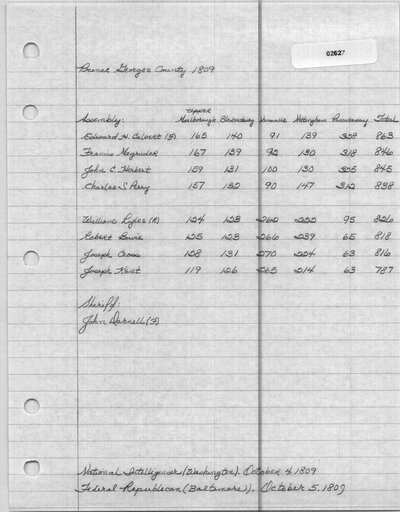 02627
Prince Georges County 1809
Upper
Assembly: Marlborough Bladensburg Vansville Nottingham Piscataway Total
Edward H. Calvert (F) 165 140 91 139 328 863
Francis Magruder 167 139 92 130 318 846
John C. Herbert 159 131 100 130 325 845
Charles S. Perry 157 132 90 147 312 838
William Lyles (R) 124 123 262 222 95 826
Robert Bowie 125 123 266 239 65 818
Joseph Cross 128 131 270 224 63 816
Joseph Kent 119 126 265 214 63 787
Sheriff:
John Darnell (F)
National Intelligencer (Washington). October 4, 1809
Federal Republican (Baltimore). October 5, 1809